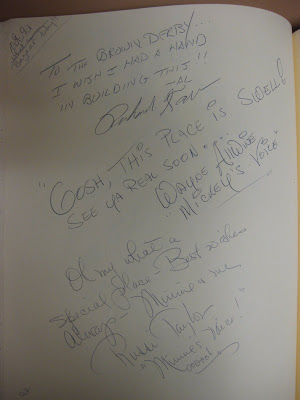 TO THE BROWN DERBY...
I WISH I HAD A HAND
IN BUILDING THIS!!
-AL
Richard
"GOSH, THIS PLACE IS SWELL!
SEE YA REAL SOON!"...
WAYNE ALLWINE
"MICKEY'S VOICE"
Oh my what a
special place - Best wishes
always - Minnie & me
Russi Taylor
"Minnie's Voice!"